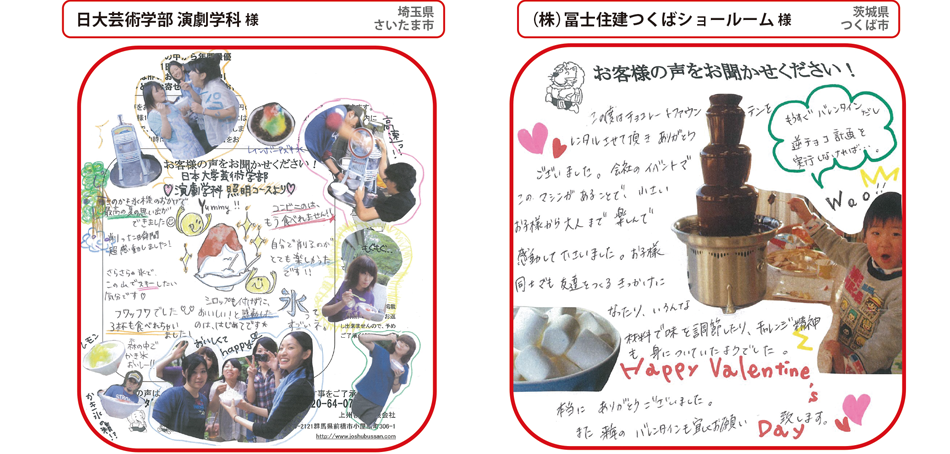 日大芸術学部 演劇学科 様
埼玉県
さいたま市
お客様の声をお聞かせください！
日本大学芸術学部
演劇学科 照明コースより
Yummy!!
高速っ!!
コンビニのは、
もう食べれません!!
自分で削るのが
とても楽しそうた
です!!
最高の夏の思い出が
できました
削った瞬間
超感動しました!
さらさらの氷で、
この山でスキーしたい
気分です
フワフワでした
3杯も食べれちゃい
ましたー!
シロップも付けずに、
おいしい！と感動した
のは、はじめてです
氷
レモン
林の中で
かき氷
おいしー!!
おいしくて
happy
かき氷の
20-64-07
-2121群馬県前橋市小屋原町306-1
http://www.joshubussan.com
（株）冨士住建つくばショールーム 様
茨城県
つくば市
お客様の声をお聞かせください！
この度はチョコレートファウンテンを
レンタルさせて頂き ありがとう
ございました。会社のイベントで
この マシンが あることで、小さい
お子様から大人まで 楽しんで
感動して下さいました。お子様
同士でも 友達をつくる きっかけに
なったり、いろんな
材料で味を調節したり、チャレンジ精神
も 身についていたようでした。
もうすぐバレンタインだし
逆チョコ計画を
実行しなければ・・・
Wao!!
Happy Valentine's
Day
本当に ありがとうございました。
また 来年の バレンタインも宜しくお願い 致します。